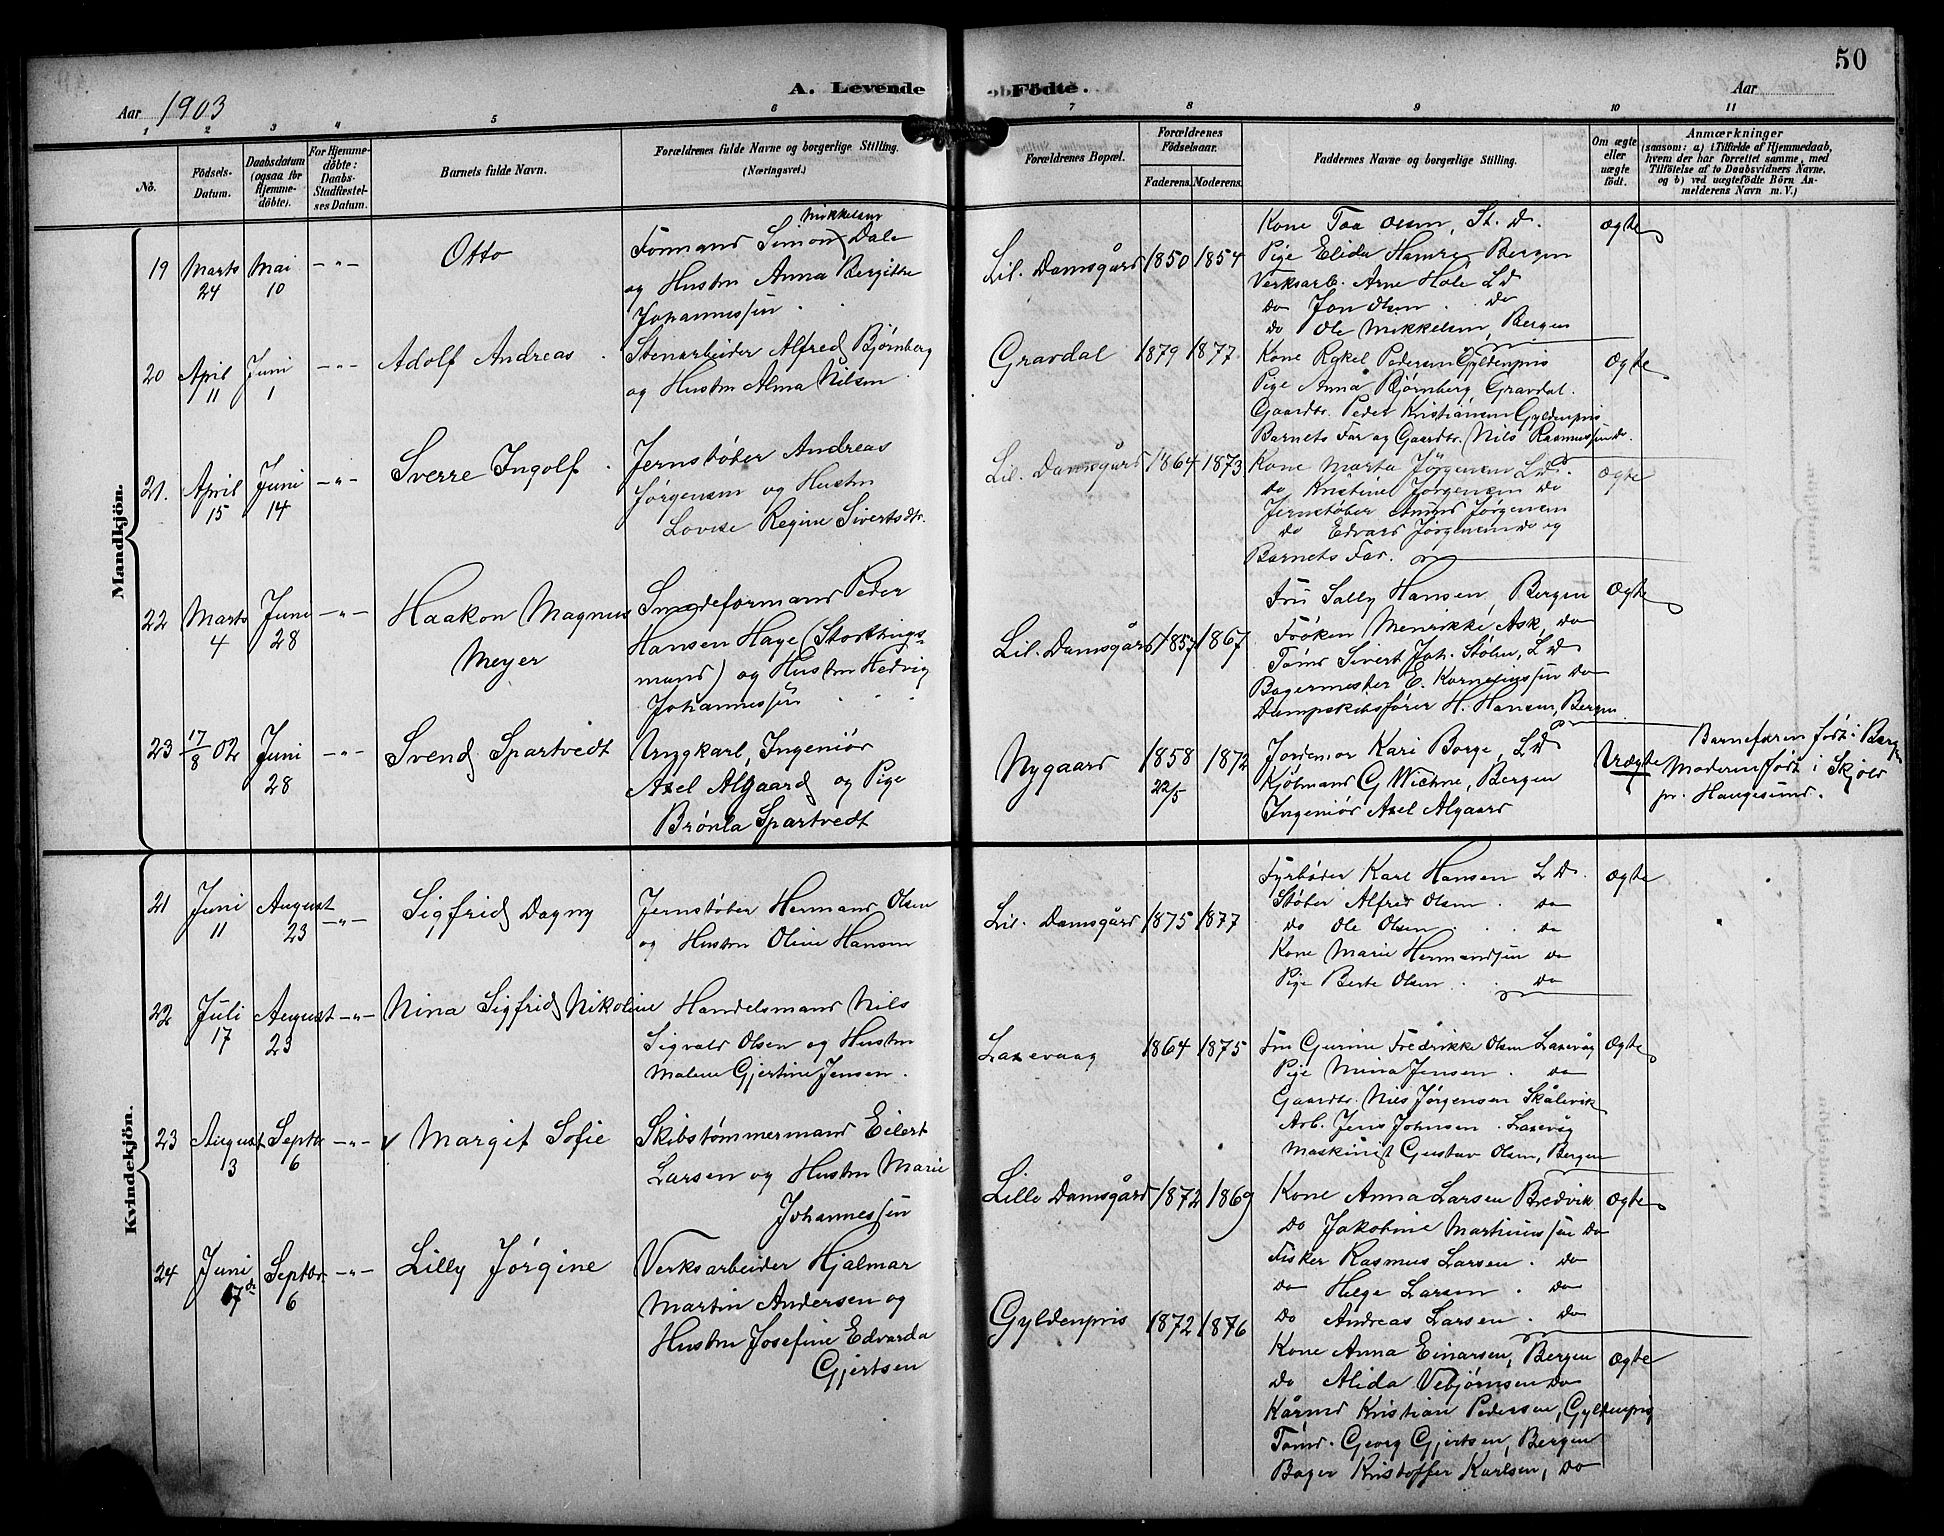 50
A. Levende Födte.
Aar 1903
Aar
1 2 3 4 5 6 7 8 9 10 11
No.
Födsels-Datum.
Daabsdatum (ogsaa for Hjemme-döbte).
For Hjemme-döbte: Daabs-Stadfæstel-ses Datum.
Barnets fulde Navn.
Forældrenes fulde Navne og borgerlige Stilling. (Næringsvei.)
Forældrenes Bopæl.
Forældrenes Födselsaar.
Faderens. Moderens.
Faddernes Navne og borgerlige Stilling.
Om ægte eller uægte födt.
Anmærkninger
(saasom: a) i Tilfælde af Hjemmedaab, hvem der har forrettet samme, med Tilföielse af to Daabsvidners Navne, og b) ved uægtefödte Börn An-melderens Navn m. V.)
Mandkjön.
19 Marts 24 Mai 10 -"- Otto
Formand Simon Mikkelsen Dale
og Hustru Anna Bergitte
Johannessen.
Lil. Damsgård 1850 1854
Kone Toa Olsen, St. D.
Pige Elida Hamre Bergen
Verksarb. Arne Hole L D
do Jon Olsen. do
do Ole Mikkelsen, Bergen
Ægte
20 April 11 Juni 1 -"- Adolf Andreas.
Stenarbeider Alfred Bjørnberg
og Hustru Alma Nilsen.
Gravdal 1879 1877.
Kone Rakel Pedersen Gyldenpris
Pige Anna Bjørnberg Gravdal.
Gaardbr. Peder Kristiansen Gyldenpris
Barnets Far og Gaardbr. Nils Rasmussen do.
Ægte
21. April 15 Juni 14 -"- Sverre Ingolf.
Jernstøber Andreas
Jørgensen og Hustru
Lovise Regine Sivertsdtr.
Lil. Damsgård 1864 1873
Kone Marta Jörgensen L D.
do Kristine Jørgensen do
Jernstøber Jørgensen
do Edvard Jørgensen do og
Barnets Far.
Ægte
22 Marts 4 Juni 28 -"- Haakon Magnus
Meyer
Smedeformand Peder
Hansen Haye (Storthings-
mand) og Hustru Hedvig
Johannessen
Lil. Damsgård 1857 1867
Fru Sally Hansen, Bergen
Frøken Henrikke Ask, do
Tømd Sivert Joh. Støhn, L D
Bagermester E. Korneliussen do
Dampskibsfører H. Hansen, Bergen.
Ægte
23 17/8 02 Juni 28 -"- Svend Spartvedt
Ungkarl, Ingeniør
Axel Algaard og Pige
Brønla Spartvedt
Nygaard 1858 22/5 1872
Jordemor Kari Borge, L D
Kjøbmand G Wichne, Bergen
Ingeniør Axel Algaard
Uægte
Barnefaren født i Bergen
Moderen født i Skjold
pr. Haugesund.
Kvindekjön.
21 Juni 11 August 23 -"- Sigfrid Dagny
Jernstøber Hermand Olsen
og Hustru Oline Hansen
Lil. Damsgård 1875 1877
Fyrbøder Karl Hansen L D.
Støber Alfred Olsen. do
do Ole Olsen. . do
Kone Marie Hermandsen do
Pige Berte Olsen. . do
Ægte
22 Juli 17 August 23 -"- Nina Sigfrid Nikoline
Handelsmand Nils
Sigvald Olsen og Hustru
Malene Gjertine Jensen.
Laxevaag 1864 1875
Fru Gurine Fredrikke Olsen Laxevåg
Pige Mina Jensen. do
Gaardbr. Nils Jørgensen Skålevik
Arb. Jens Johnsen. Laxevåg
Maskinist Gustav Olsen, Bergen
Ægte
23 August 3 Septbr 6 -"- v Margit Sofie
Skibstømmermand Eilert
Larsen og Hustru Marie
Johannessen
Lille Damsgård 1872 1869
Kone Anna Larsen Bredvik
do Jakobine Martinussen do
Fisker Rasmus Larsen. do
do Helge Larsen. do
do Andreas Larsen. do
Ægte
24 Juni 7de Septbr 6 -"- Lilly Jørgine
Verksarbeider Hjalmar
Martin Andersen og
Hustru Josefine Edvarda
Gjertsen
Gyldenpris 1872 1876
Kone Anna Einarsen, Bergen
do Alida Vebjørnsen do
Kårmd Kristian Pedersen, Gyldenpris
Tømd. Georg Gjertsen, Bergen
Bager Kristoffer Karlsen, do
Ægte